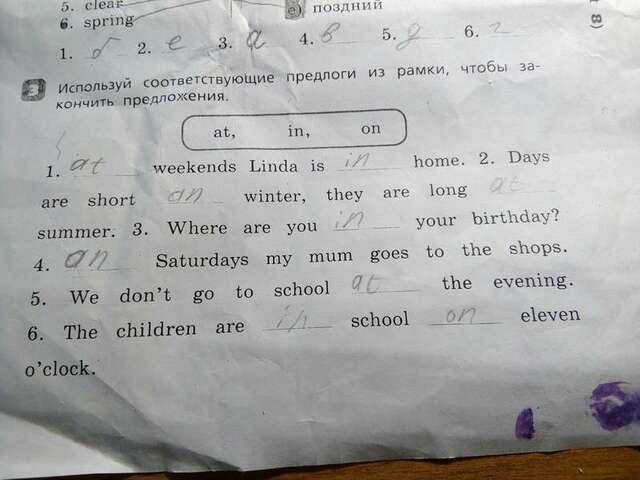 5. clear
6. spring
е) поздний
8)
1. б 2. е 3. а 4. в 5. д 6. г
3 Используй соответствующие предлоги из рамки, чтобы за-
кончить предложения.
at, in, on
1. at weekends Linda is in home. 2. Days
are short an winter, they are long at
summer. 3. Where are you in your birthday?
4. an Saturdays my mum goes to the shops.
5. We don't go to school at the evening.
6. The children are in school on eleven
o'clock.